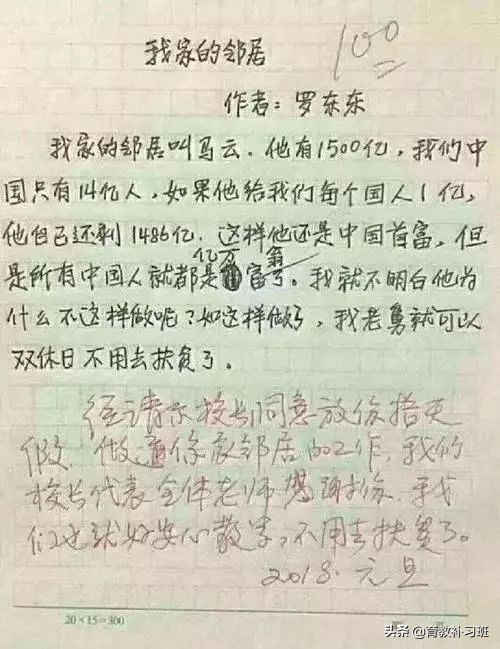 我家的邻居
100
作者：罗东东
我家的邻居叫马云．他有1500亿，我们中
国只有14亿人，如果他给我们每个国人1亿，
他自己还剩1486亿．这样他还是中国首富，但
是所有中国人就都是亿万富翁了。我就不明白他为
什么不这样做呢？如这样做了，我老舅就可以
双休日不用去扶贫了。
经请示校长同意放你搭天
假．做通你家邻居的工作．我们
校长代表全体老师感谢你．我
们也就好安心教学，不用去扶贫了。
2018．元旦
20×15=300
头条 @育教补习班